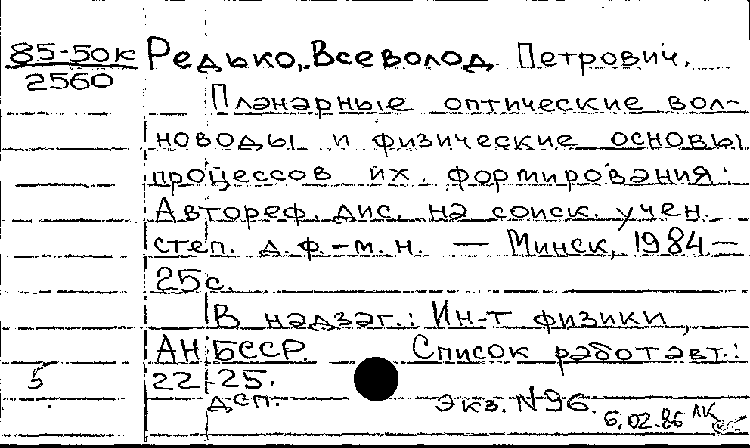 85-50к Редько, Всеволод Петрович.
2560
Планарные оптические вол-
новоды и физические основы
процессов их формирования:
Автореф. дис. на соиск. учен.
степ. д. ф.-м. н. — Минск, 1984.—
25 с.
В надзаг.: Ин-т физики
АН БССР. Список работ авт.:
5 22-25.
дсп. экз. N96.
6.02.86 ЛК